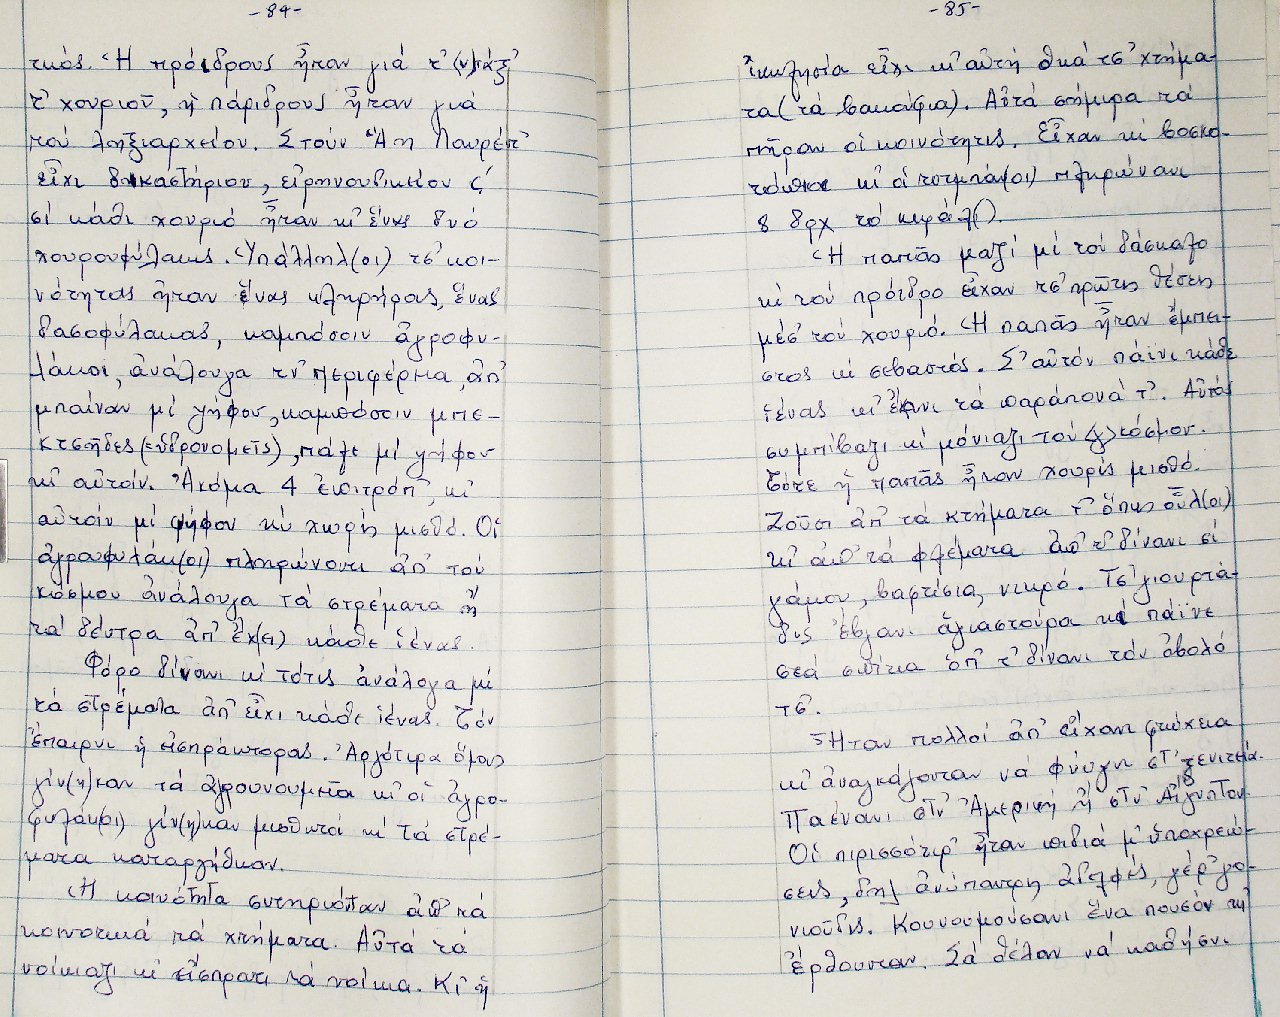 -84-
τικός. Ἡ πρόιδρους ἦταν γιά τ' (ν)τάξ'
τ' χουριοῦ, ἡ πάριδρους ἦταν γιά
τού ληξιαρχείον. Στούν Ἅη Λαυρέντ'
εἶχι δικαστήριον, εἰρηνουδικεῖον
σί κάθι χουριό ἦταν κί ἕνας δυό
χουρουφύλακις. Ὑπάλληλ(οι) τσ' κοι-
νότητας ἦταν ἕνας κληρήρας, ἕνας
δασοφύλακας, καμπόσοιν ἀγροφυ-
λάκοι, ἀνάλουγα τν' περιφέρεια, ἀπ'
μπαίναν μί ψήφον, καμπόσοιν μπε-
κτσῆδες (εὑδρονομεῖς), πάλε μί ψήφον
κί αὐτοίν. Ἀκόμα 4 ἐπιτρόπ', κί
αὐτοίν μί ψήφον κί χωρίς μισθό. Οἱ
ἀγρουφυλάκ(οι) πληρώνονταν ἀπ' τού
κόσμου ἀνάλουγα τά στρέματα ἤ
τά δέντρα ἀπ' ἔχ(ει) κάθε ἱένας.
Φόρο δίνανι κί τότις ἀνάλογα μί
τά στρέματα ἀπ' εἶχι κάθε ἱένας. Τόν
ἔπαιρνι ἡ εἰσπράκτορας. Ἀργότιρα ὅμους
γίν(η)καν τά ἀγρουνουμεῖα κί οἱ ἀγρο-
φυλάκ(οι) γίν(η)καν μισθωτοί κί τά στρέ-
ματα καταργήθκαν.
Ἡ κοινότητα συντηριόταν ἀπ' τά
κοινοτικά τά χτήματα. Αὐτά τά
νοίκιαζι κί εἴσπρατι τά νοίκια. Κί ἡ
-85-
ἰκκλησία εἶχι κί αὐτή θκά τσ' χτήμα-
τα (τά βακούφια). Αὐτά σήμιρα τά
πῆραν οἱ κοινότητις. Εἶχαν κί βοσκο-
τόπια κί οἱ τσομπάν(οι) πληρώνανι
8 δρχ τό κιφάλ().
Ἡ παπᾶς μαζί μί τού δάσκαλο
κί τού πρόιδρο εἶχαν τσ' πρῶτις θέσεις
μέσ' τού χουριό. Ἡ παπᾶς ἦταν ἔμπι-
στος κί σεβαστός. Σ' αὐτόν πάϊνι κάθε
ἱένας κί ἔκανι τά παράπονά τ'. Αὐτός
συμπίβαζι κί μόνιαζι τού (γ)κόσμον.
Τότε ἡ παπᾶς ἦταν χουρίς μισθό.
Ζοῦσι ἀπ' τά κτήματα τ' ὅπως οὗλ(οι)
κί ἀπ' τά ψέματα ἀπ' τ' δίνανι σί
γάμου, βαφτίσια, νικρό. Τσ' γιουρτά-
δις ἔβγανι ἁγιαστούρα κί πάϊνε
στά σπίτια ἀπ' τ' δίνανι τόν ὀβολό
τσ'.
Ἦταν πολλοί ἀπ' εἶχαν φτώχεια
κί ἀναγκάζονταν νά φύυγν στ' ξενιτειά.
Παένανι στν' Ἀμερική ἤ στν' Αἴγυπτον.
Οἱ πιρισσότιρ' ἦταν πιδιά μ' ὑποχρεώ-
σεις, δηλ ἀνύπαντρις ἀδελφές, γέρ' γο-
νιοῦδις. Κουνουμούσανι ἕνα πουσόν κί
ἔρθουνταν. Σά θέλαν νά καθήσνι